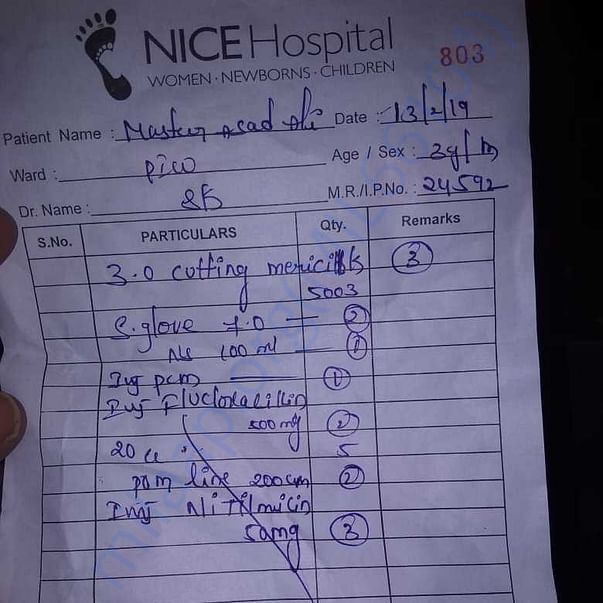 NICE Hospital
WOMEN · NEWBORNS · CHILDREN
803
Patient Name : Master Asad Ali Date : 13/2/19
Ward : PICU Age / Sex : 3y/m
Dr. Name : M.R./I.P.No. : 24592
S.No. PARTICULARS Qty. Remarks
3.0 cutting 3
5003
S.glove 7.0 — 2
NS 100 ml — 1
Inj pcm — 1
Inj Flucloxacillin
500mg 2
20 cc 5
pm line 200cm 2
Inj
3